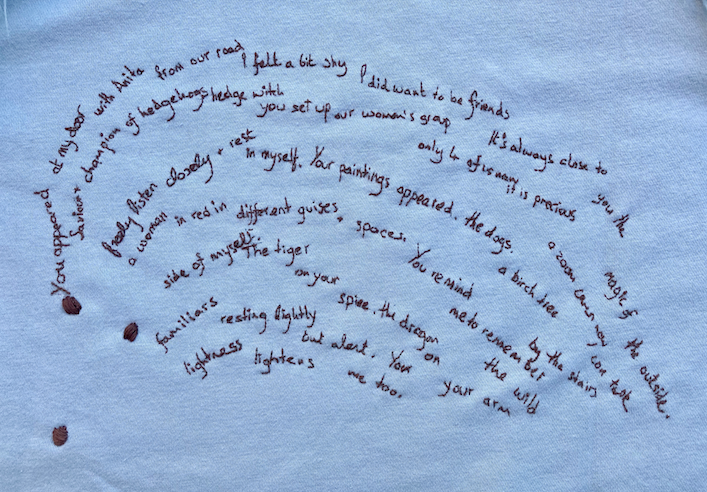 You appeared at my door with Anita from our road I felt a bit shy I did want to be friends It's always close to you the magic of the outside.
saviour + champion of hedgehogs hedge witch you set up our women's group only 4 of us now it is precious a zoom when now you can talk
freely listen closely + rest in myself. Your paintings appeared. the dogs. a birch tree by the stairs
a woman in red in different guises + spaces. You remind me to remember the wild
side of myself. The tiger on your spine. the dragon on your arm
familiars resting lightly but alert. Your
lightness lightens me too.